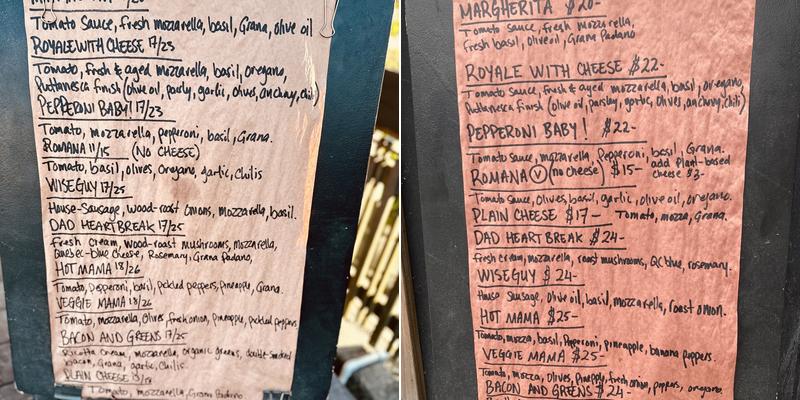 Tomato Sauce, fresh mozzarella, basil, Grana, olive oil
ROYALE WITH CHEESE 17/23
Tomato, fresh & aged mozzarella, basil, oregano,
Puttanesca finish (olive oil, parsly, garlic, olives, anchovy, chili)
PEPPERONI BABY! 17/23
Tomato, mozzarella, peperoni, basil, Grana.
ROMANA 11/15 (NO CHEESE)
Tomato, basil, olives, oregano, garlic, chilis
WISEGUY 17/25
House-Sausage, wood-roast onions, mozzarella, basil.
DAD HEARTBREAK 17/25
Fresh Cream, wood-roast mushrooms, mozzarella,
Quebec-blue cheese, Rosemary, Grana Padano,
HOT MAMA 18/26
Tomato, Pepperoni, basil, pickled peppers, pineapple, Grana.
VEGGIE MAMA 18/26
Tomato, mozzarella, Olives fresh onion, pineapple, pickled peppers
BACON AND GREENS 17/25
Ricotta Cream, mozzarella, organic greens, double-smoked
bacon, Grana, garlic, Chilis.
PLAIN CHEESE
Tomato, mozzarella, Grana Padano
MARGHERITA $20-
Tomato Sauce, fresh mozzarella,
fresh basil, olive oil, Grana Padano
ROYALE WITH CHEESE $22-
Tomato Sauce, fresh & aged mozzarella, basil, oregano,
Puttanesca finish (olive oil, parsley, garlic, Olives, anchovy, chili)
PEPPERONI BABY! $22-
Tomato Sauce, mozzarella, Pepperoni, basil, Grana.
ROMANA V (no cheese) $15- add Plant-based
cheese $3-
Tomato Sauce, Olives, basil, garlic, olive oil, oregano.
PLAIN CHEESE $17- Tomato, mozza, Grana.
DAD HEARTBREAK $24-
fresh cream, mozzarella, roast mushrooms, QC blue, rosemary.
WISEGUY $24-
House Sausage, olive oil, basil, mozzarella, roast onion.
HOT MAMA $25-
Tomato, mozza, basil, Pepperoni, pineapple, banana peppers.
VEGGIE MAMA $25-
Tomato, mozza, olives, Pineapple, fresh onion, peppers, oregano.
BACON AND GREENS $24-